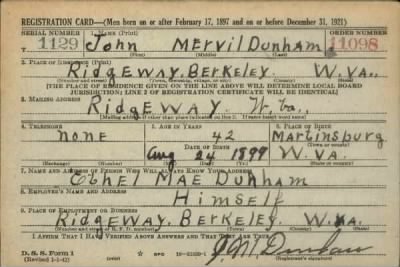 REGISTRATION CARD—(Men born on or after February 17, 1897 and on or before December 31, 1921)
SERIAL NUMBER 1. NAME (Print) ORDER NUMBER
1129 John Mervil Dunham 11098
(First) (Middle) (Last)
2. PLACE OF RESIDENCE (Print)
Ridgeway, Berkeley W. VA.,
(Number and street) (Town, township, village, or city) (County) (State)
[THE PLACE OF RESIDENCE GIVEN ON THE LINE ABOVE WILL DETERMINE LOCAL BOARD
JURISDICTION; LINE 2 OF REGISTRATION CERTIFICATE WILL BE IDENTICAL]
3. MAILING ADDRESS
Ridgeway. W. Va.,
[Mailing address if other than place indicated on line 2. If same insert word same]
4. TELEPHONE 5. AGE IN YEARS 6. PLACE OF BIRTH
none 42 Martinsburg
DATE OF BIRTH (Town or county)
Aug 24 1899 W. VA.
(Exchange) (Number) (Mo.) (Day) (Yr.) (State or country)
7. NAME AND ADDRESS OF PERSON WHO WILL ALWAYS KNOW YOUR ADDRESS
Ethel Mae Dunham
8. EMPLOYER'S NAME AND ADDRESS
Himself
9. PLACE OF EMPLOYMENT OR BUSINESS
Ridgeway. Berkeley. W. VA.
(Number and street or R. F. D. number) (Town) (County) (State)
I AFFIRM THAT I HAVE VERIFIED ABOVE ANSWERS AND THAT THEY ARE TRUE.
D. S. S. Form 1
(Revised 1-1-42) GPO J. M. Dunham